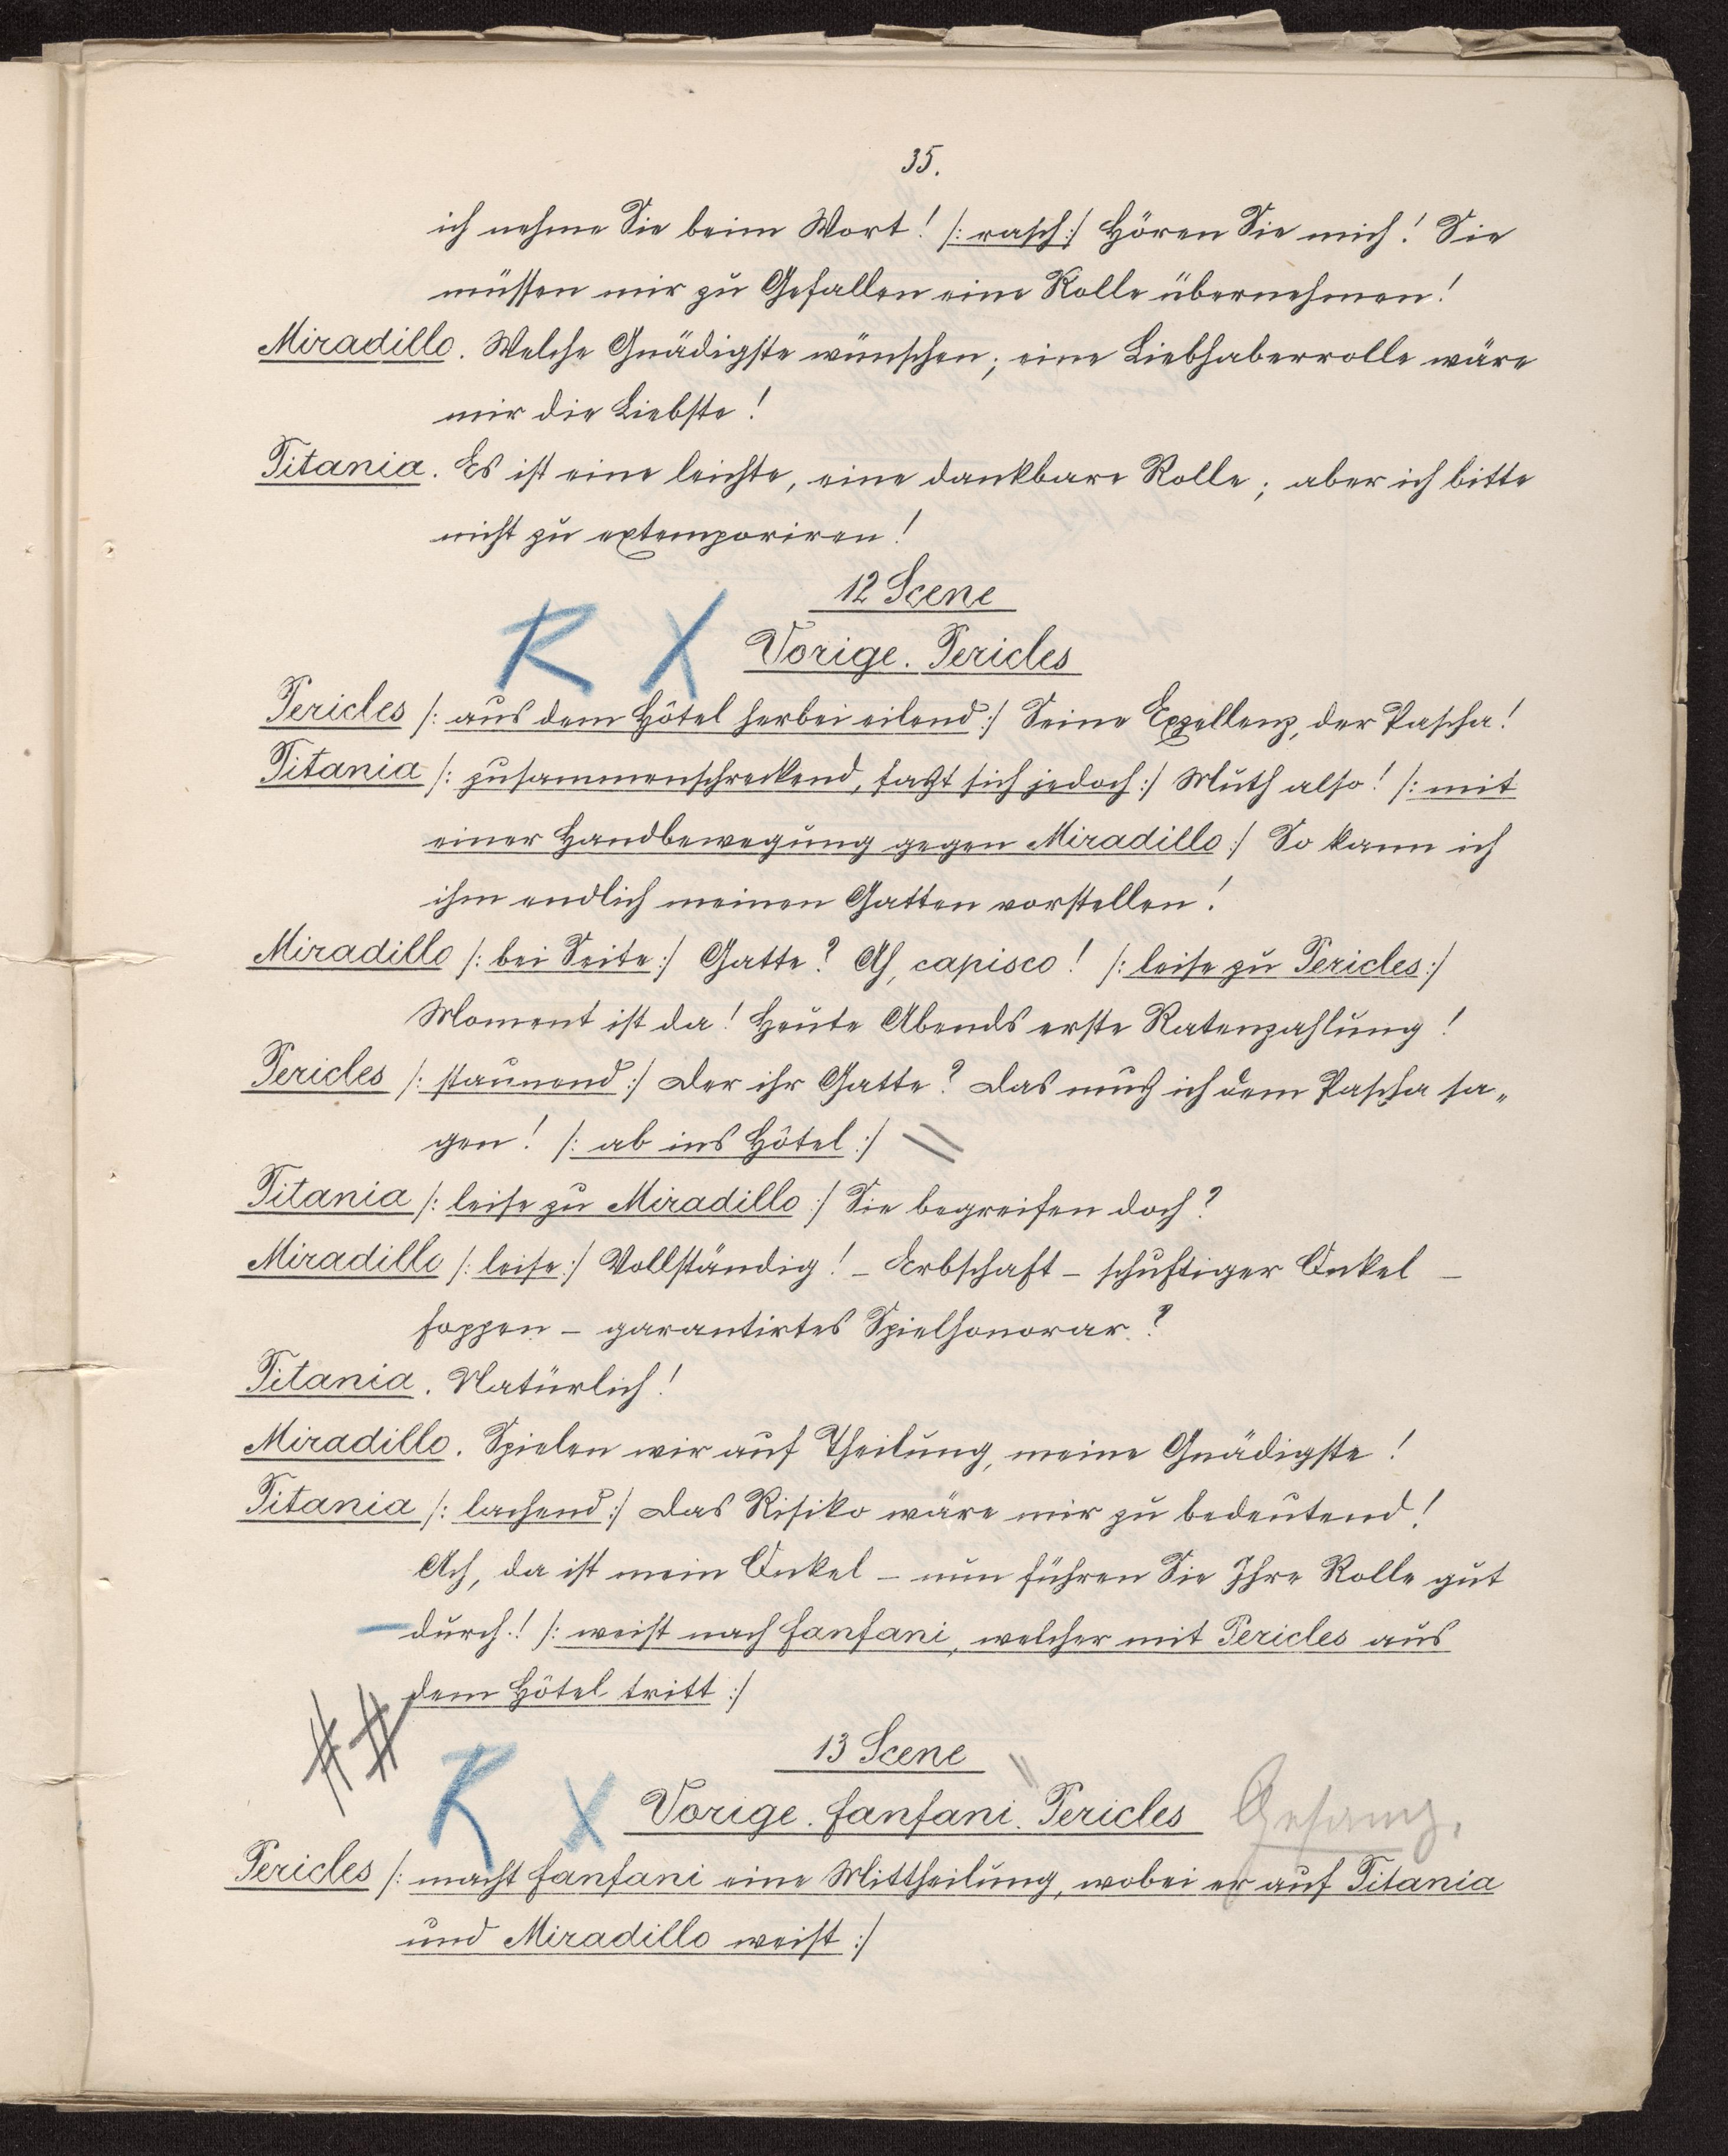 35.
ich nehme Sie beim Wort! /: rasch :/ Hören Sie mich! Sie
müssen mir zu Gefallen eine Rolle übernehmen!
Miradillo. Welche Gnädigste wünschen; eine Liebhaberrolle wäre
mir die Liebste!
Titania. Es ist eine leichte, eine dankbare Rolle; aber ich bitte
nicht zu extemporiren!
12 Scene
R X Vorige. Pericles
Pericles /: aus dem Hôtel herbei eilend :/ Seine Exzellenz, der Pascha!
Titania /: zusammenschreckend, faßt sich jedoch :/ Muth also! /: mit
einer Handbewegung gegen Miradillo :/ So kann ich
ihm endlich meinen Gatten vorstellen!
Miradillo /: bei Seite :/ Gatte? Ah, capisco! /: leise zu Pericles :/
Moment ist da! Heute Abends erste Ratenzahlung!
Pericles /: staunend :/ Der ihr Gatte? Das muß ich dem Pascha sa„
gen! /: ab ins Hôtel :/
Titania /: leise zu Miradillo :/ Sie begreifen doch?
Miradillo /: leise :/ Vollständig! – Erbschaft – schuftiger Onkel –
foppen – garantirtes Spielhonorar?
Titania. Natürlich!
Miradillo. Spielen wir auf Theilung, meine Gnädigste!
Titania /: lachend :/ Das Risiko wäre mir zu bedeutend!
Ach, da ist mein Onkel – nun führen Sie Ihre Rolle gut
durch! /: weist nach Fanfani, welcher mit Pericles aus
dem Hôtel tritt :/
13 Scene
R X Vorige. Fanfani. Pericles Gesang.
Pericles /: macht Fanfani eine Mittheilung, wobei er auf Titania
und Miradillo weist :/